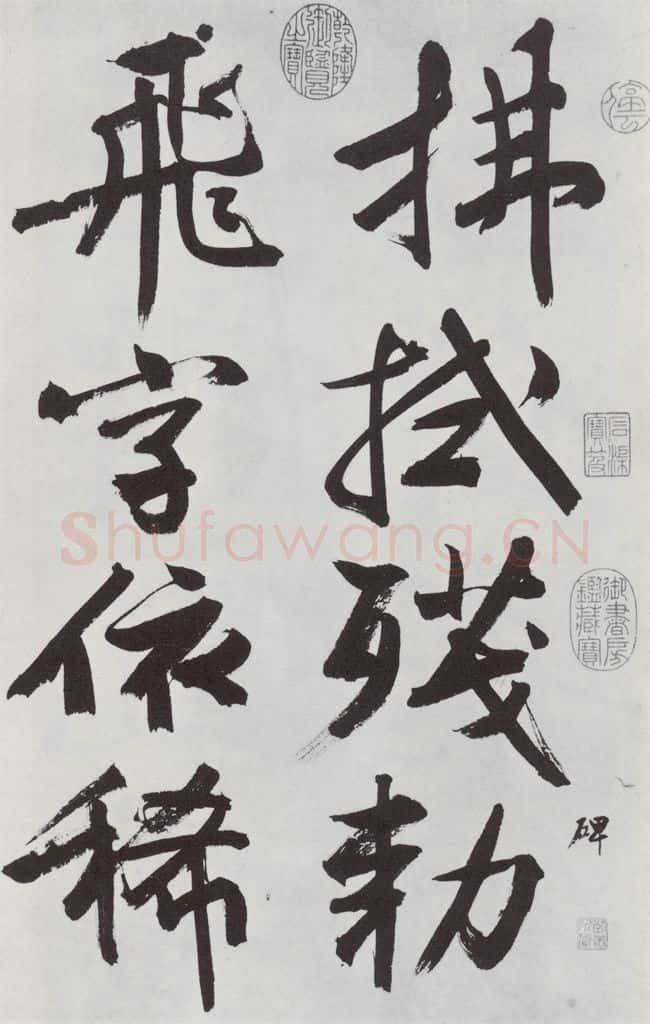 碑
拂拭殘勅
飛字依稀
乾隆御覽之寶
石渠寶笈
御書房鑑藏寶
Shufawang.CN